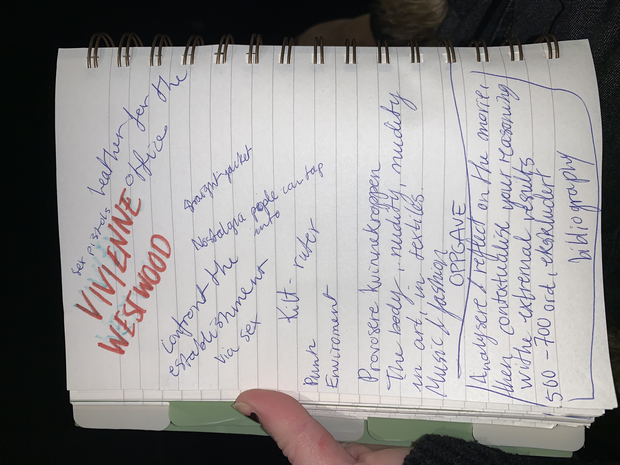 Sex pistols
leather for the
office
VIVIENNE
WESTWOOD
straight jacket
Nostalgia people can tap
into
Confront the
establishment
via sex
kilt - ruter
Punk
Enviroment
Provosere kvinnekroppen
The body, nudity, nudity
in art, in textiles.
Music & fashion
OPPGAVE
Analysere & reflect on the movie,
then contextualise your reasoning
with external results
500-700 ord, ekskludert
bibliography